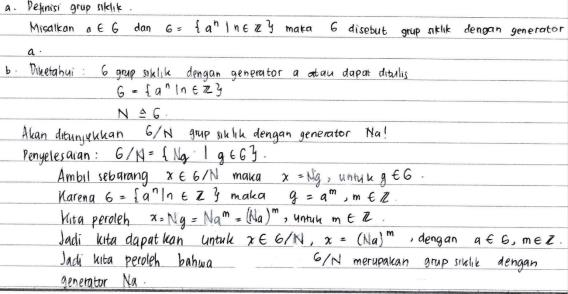 a. Definisi grup siklik.
Misalkan a ∈ G dan G = {aⁿ | n ∈ Z} maka G disebut grup siklik dengan generator
a.
b. Diketahui : G grup siklik dengan generator a atau dapat ditulis
G = {aⁿ | n ∈ Z}
N ⊴ G.
Akan ditunjukkan G/N grup siklik dengan generator Na!
Penyelesaian : G/N = {Ng | g ∈ G}.
Ambil sebarang x ∈ G/N maka x = Ng, untuk g ∈ G.
Karena G = {aⁿ | n ∈ Z} maka g = aᵐ, m ∈ Z.
Kita peroleh x = Ng = Naᵐ = (Na)ᵐ, untuk m ∈ Z.
Jadi kita dapatkan untuk x ∈ G/N, x = (Na)ᵐ, dengan a ∈ G, m ∈ Z.
Jadi kita peroleh bahwa G/N merupakan grup siklik dengan
generator Na.